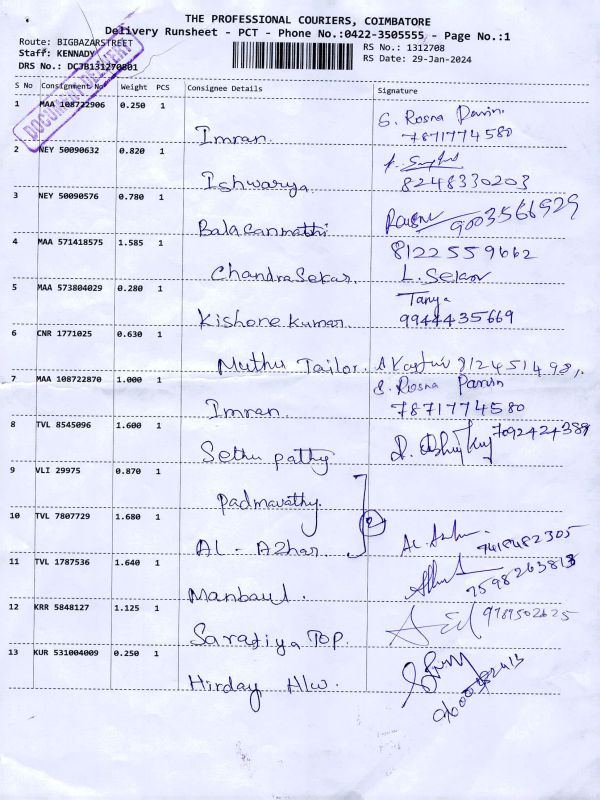 THE PROFESSIONAL COURIERS, COIMBATORE
Delivery Runsheet - PCT - Phone No.:0422-3505555 - Page No.:1
Route: BIGBAZARSTREET
RS No.: 1312708
Staff: KENNADY
RS Date: 29-Jan-2024
DRS No.: DCJB131270801
DOCUMENT DELIVERY
S No Consignment No Weight PCS Consignee Details Signature
1 MAA 108722906 0.250 1 Imran S. Rosna Parvin
7871774580
2 NEY 50090632 0.820 1 Ishwarya
8248330203
3 NEY 50090576 0.780 1 Balaganmathi 9003566929
4 MAA 571418575 1.585 1 ChandraSekar 8122559662
L. Sekar
5 MAA 573804029 0.280 1 Kishore Kumar Tanya
9944435669
6 CNR 1771025 0.630 1 Muthu Tailor
7 MAA 108722870 1.000 1 Imran S. Rosna Parvin
7871774580
8 TVL 8545096 1.600 1 Sethu pathy 7092424389
9 VLI 29975 0.870 1 Padmavathy
10 TVL 7807729 1.680 1 AL - Azhar 2
7418482305
11 TVL 1787536 1.640 1 Manbaul.
7598263813
12 KRR 5848127 1.125 1 Sarafiya TOP. 9789502625
13 KUR 531004009 0.250 1 Hirday Hlw.